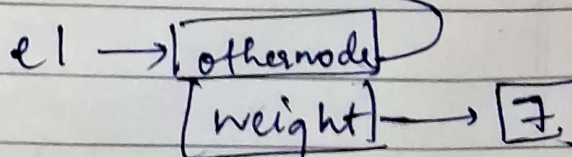 e1 → othernode
weight → 7